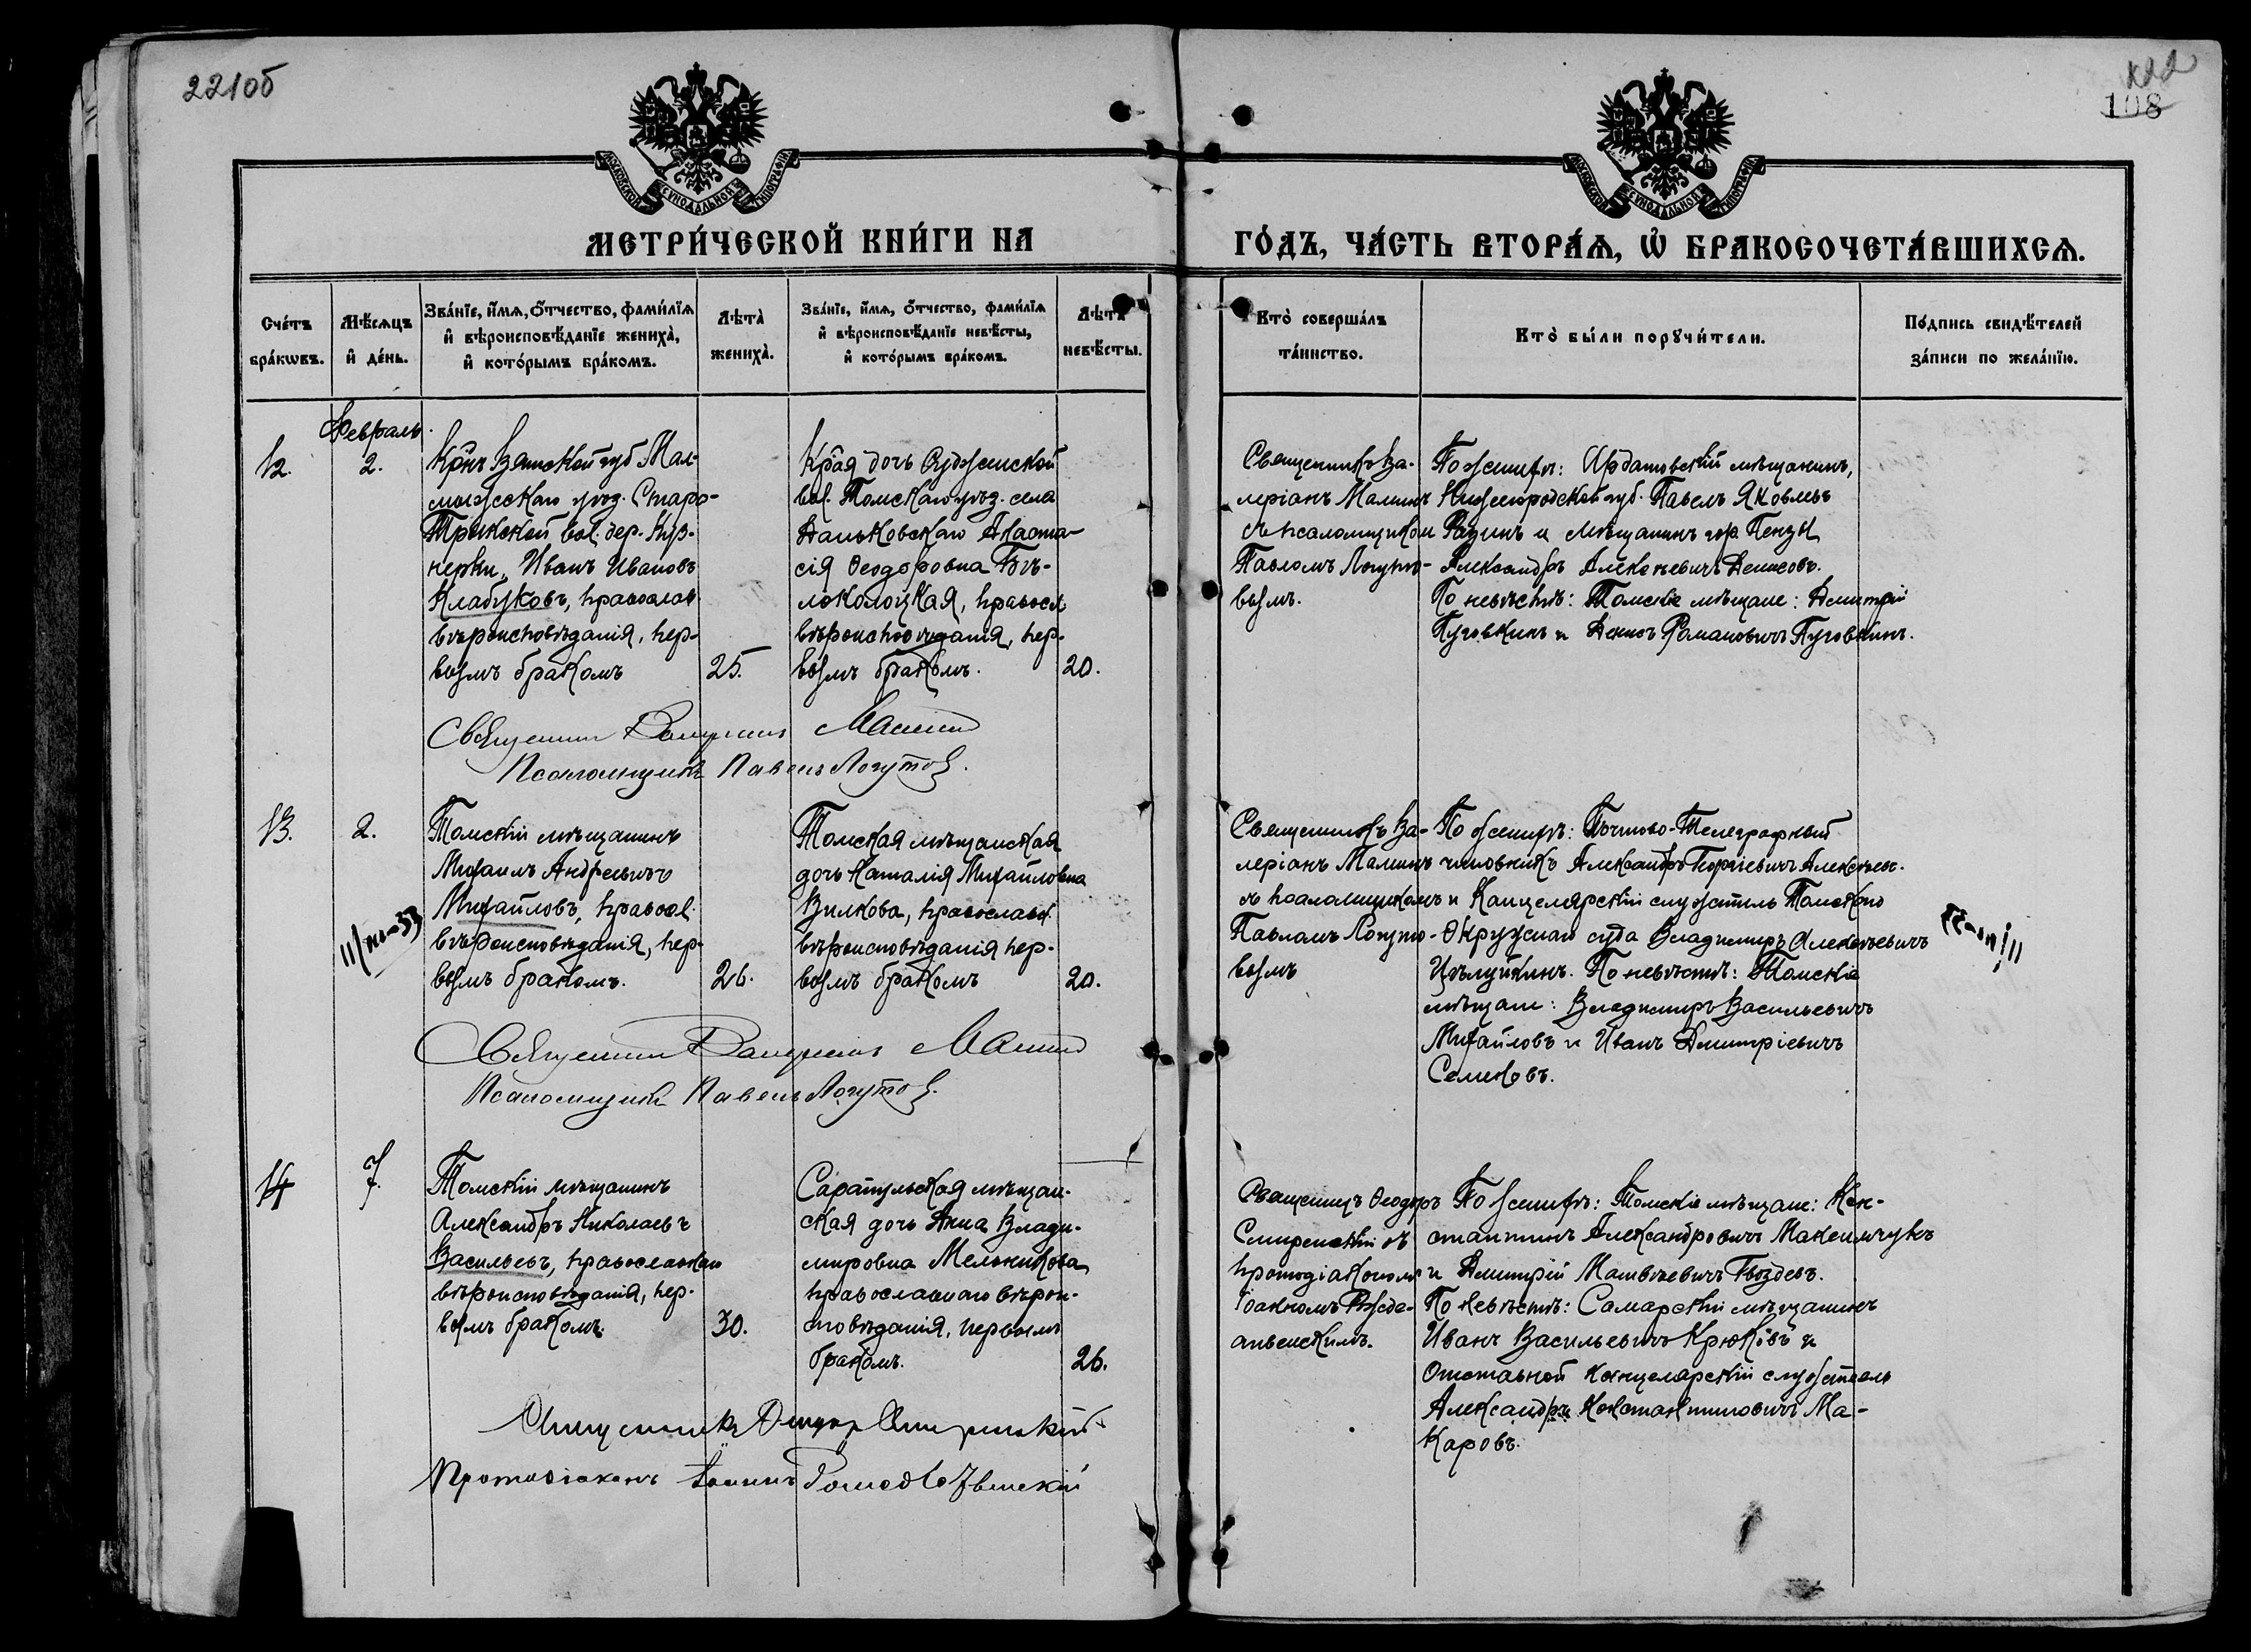 221об
108
МОСКОВСКОЙ СУНОДАЛЬНОЙ ТИПОГРАФІИ
МОСКОВСКОЙ СУНОДАЛЬНОЙ ТИПОГРАФІИ
МЕТРИ́ЧЕСКОЙ КНИ́ГИ НА
ГО́ДЪ, ЧА́СТЬ ВТОРА́Ѧ, Ѡ҆ БРАКОСОЧЕТА́ВШИХСѦ.
Сче́тъ бра́кѡвъ.
Мѣ́сѧцъ и҆ де́нь.
Зва́нїе, и҆́мѧ, ѻ҆́тчество, фами́лїѧ и҆ вѣроисповѣ́данїе жениха̀, и҆ кото́рымъ бра́комъ.
Лѣта̀ жениха̀.
Зва́нїе, и҆́мѧ, ѻ҆́тчество, фами́лїѧ и҆ вѣроисповѣ́данїе невѣ́сты, и҆ кото́рымъ бра́комъ.
Лѣта̀ невѣ́сты.
Кто̀ соверша́лъ та́инство.
Кто̀ бы́ли порꙋчи́тели.
По́дпись свидѣ́телей за́писи по жела́нїю.
Февраль.
12.
2.
Кр̃нъ Вятской губ Мал-
мыжскаго уѣзд. Старо-
Трыкской вол. дер. Куз-
нерки, Иванъ Ивановъ
Клабуковъ, православ.
вѣроисповѣданія, пер-
вымъ бракомъ
25.
Кр̃ая дочь Судженской
вол. Томскаго уѣзд. села
Даньковскаго Анаста-
сія Ѳеодоровна Бѣ-
локолоцкая, правосл
вѣроисповѣданія, пер-
вымъ бракомъ.
20.
Священникъ Ва-
леріанъ Малинъ
съ псаломщиком
Павломъ Логуто-
вымъ.
По женихѣ: Ардатовскій мѣщанинъ,
Нижегородской губ. Павелъ Яковлевъ
Разинъ и мѣщанинъ гор. Пензы
Александръ Алексѣевичъ Денисовъ.
По невѣстѣ: Томскіе мѣщане: Дмитрій
Пуговкинъ и Денисъ Романовичъ Пуговкинъ.
Священник Валеріанъ Малинъ
Псаломщикъ Павелъ Логутов.
13.
2.
Томскій мѣщанинъ
Михаилъ Андреевичъ
Михайловъ, правосл.
вѣроисповѣданія, пер-
вымъ бракомъ.
26.
Томская мѣщанская
дочь Наталія Михайловна
Вилкова, православ.
вѣроисповѣданія пер-
вымъ бракомъ
20.
Священникъ Ва-
леріанъ Малинъ
съ псаломщикомъ
Павломъ Логуто-
вымъ
По женихѣ: Почтово-Телеграфный
чиновникъ Александръ Георгіевичъ Алексѣевъ.
и Канцелярскій служитель Томскаго
Окружнаго суда Владимиръ Алексѣевичъ
Цѣлуйкинъ. По невѣстѣ: Томскіе
мѣщане: Владимиръ Васильевичъ
Михайловъ и Иванъ Дмитріевичъ
Семеновъ.
Священник Валеріанъ Малинъ
Псаломщикъ Павелъ Логутов.
14
7.
Томскій мѣщанинъ
Александръ Николаевъ
Васильевъ, православнаго
вѣроисповѣданія, пер-
вымъ бракомъ.
30.
Сарапульская мѣщан-
ская дочь Анна Влади-
мировна Мельникова
православнаго вѣроис-
повѣданія, первымъ
бракомъ.
26.
Священникъ Ѳеодоръ
Смиренскій съ
протодіакономъ
Іоанномъ
По женихѣ: Томскіе мѣщане: Кон-
стантинъ Александровичъ Максимчукъ
и Дмитрій Матвѣевичъ Гвоздевъ.
По невѣстѣ: Самарскій мѣщанинъ
Иванъ Васильевичъ Крюковъ и
Отставной канцелярскій служитель
Александръ Константиновичъ Ма-
каровъ.
Священникъ Ѳеодоръ Смиренскій
Протодіаконъ Іоаннъ